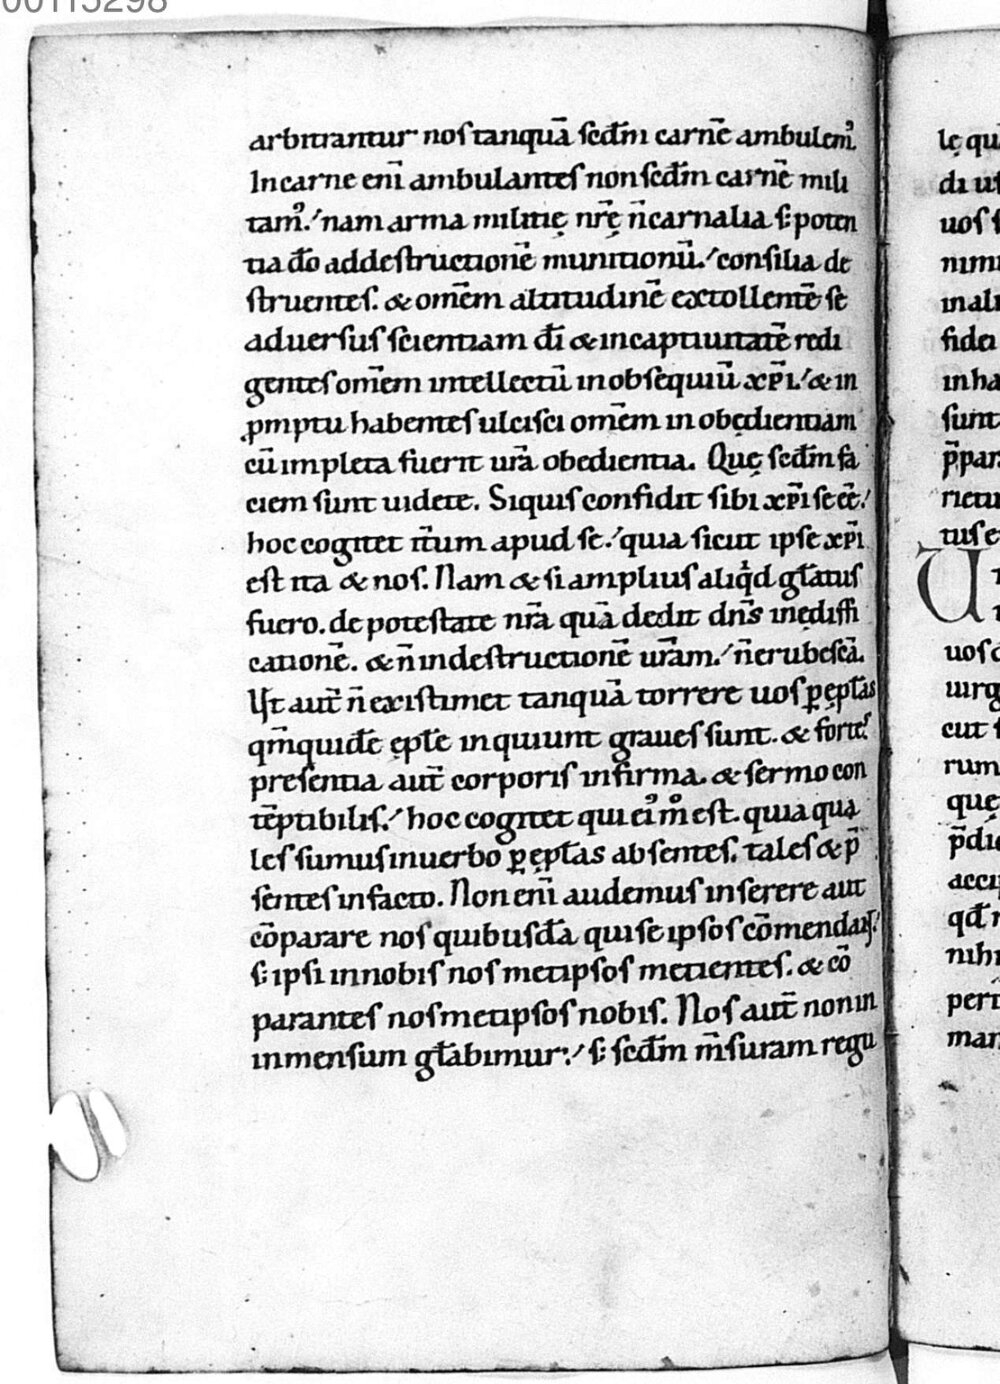 00115298
arbitrantur nos tanquā scdm̄ carnē ambulem᷒.
In carne eni̅ ambulantes non scdm̄ carnē mili
tam᷒. nam arma militię nr̄ę n̄ carnalia s; poten
tia dō ad destructionē munitionū. consilia de
struentes. & om̄em altitudinē extollentē se
adversus scientiam dī & in captiuitatē redi
gentes om̄em intellectū in obsequiū xp̄i. & in
ꝓmptu habentes ulcisci om̄em inobędientiam
cū impleta fuerit ur̄a obedientia. Quę scdm̄ fa
ciem sunt uidete. Siquis confidit sibi xp̄i se ēē.
hoc cogitet it̄um apud se. quia sicut ipse xp̄i
est ita & nos. Nam & si amplius aliqͥd gl̄atus
fuero. de potestate nr̄a quā dedit dn̄s in ędiffi
cationē. & n̄ in destructionē ur̄am. n̄ erubescā.
Ut aut̄ n̄ existimet tanquā torrere uos ꝑ ępl̄as
qm̄ quidē ępl̄e inquiunt graues sunt. & fortes.
presentia aut̄ corporis infirma. & sermo con
tēptibilis. hoc cogitet qui ei᷒mͦ est. quia qua
les sumus in uerbo ꝑ ępl̄as absentes. tales & p̄
sentes in facto. Non eni̅ audemus inserere aut
cōparare nos quibusdā qui se ipsos cōmendant.
s; ipsi in nobis nosmetipsos metientes. & cō
parantes nosmetipsos nobis. Nos aut̄ non in
inmensum gl̄abimur. s; scdm̄ m̄suram regu
lę qu
di
uos
nimi
mali
fidei
in ha
sunt
p̄par
rietu
tus e
U
uos
uirg
cut
rum
quę
p̄di
acci
qd̄
nihi
peri
man